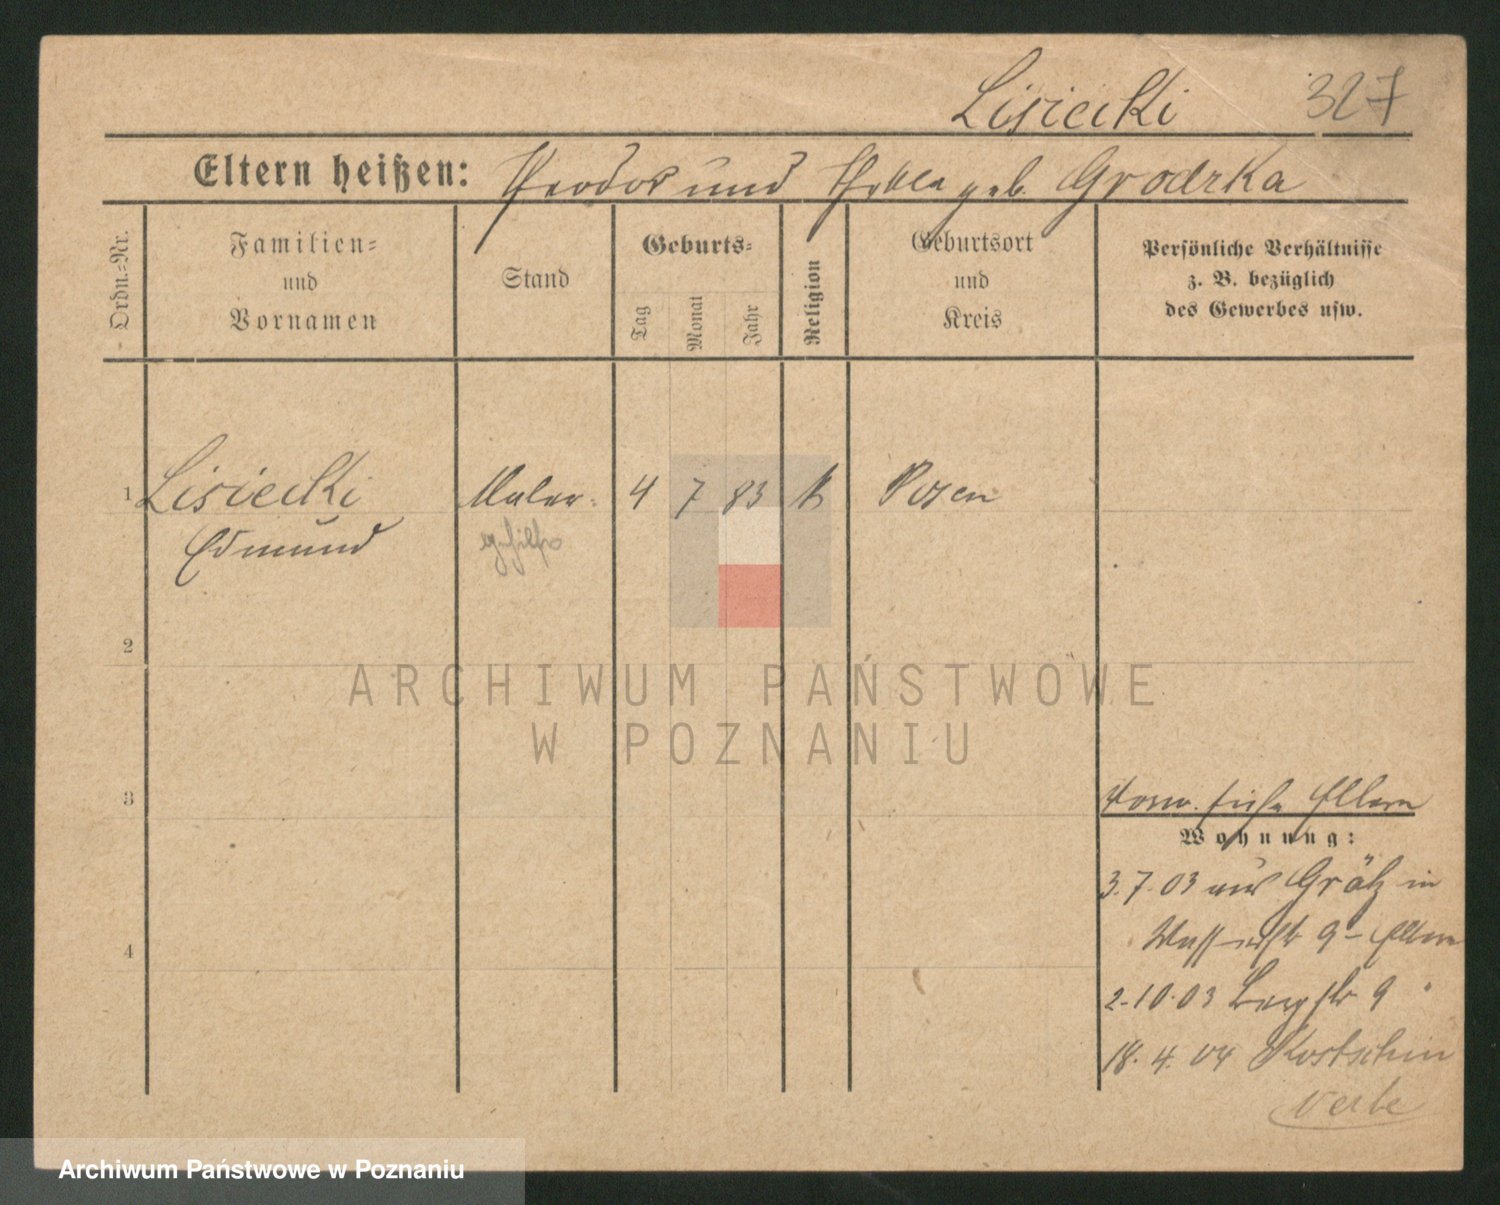 Lisiecki 327
Eltern heißen: Theodor und Thekla geb. Grodzka
Ordn.-Nr.
Familien-
und
Vornamen
Stand
Geburts-
Tag
Monat
Jahr
Religion
Geburtsort
und
Kreis
Persönliche Verhältnisse
z. B. bezüglich
des Gewerbes usw.
1 Lisiecki Maler- 4 7 83 k Posen
Edmund gehilfe
2
ARCHIWUM PAŃSTWOWE
W POZNANIU
3
siehe Eltern
Wohnung:
3.7.03 aus Grätz in
9 - Eltern
4
2.10.03 Bergstr 9 "
18.4.04 Kostschin
Archiwum Państwowe w Poznaniu